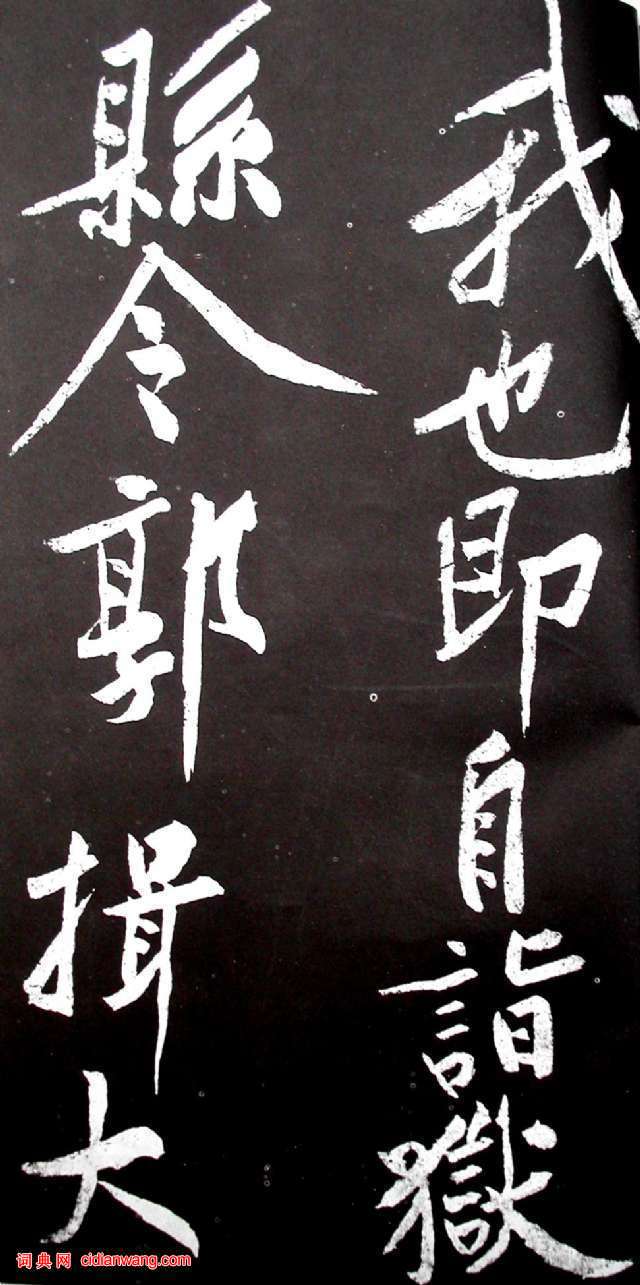 我也即自詣獄
縣令郭揖大
词典网 cidianwang.com